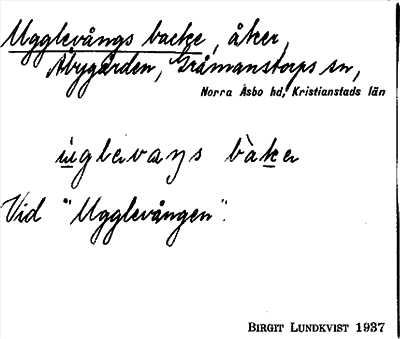 Ugglevångs backe, åker,
Åbygården, Gråmanstorps sn,
Norra Åsbo hd, Kristianstads län
ùglevaŋs bàkə
Vid "Ugglevången".
BIRGIT LUNDKVIST 1937